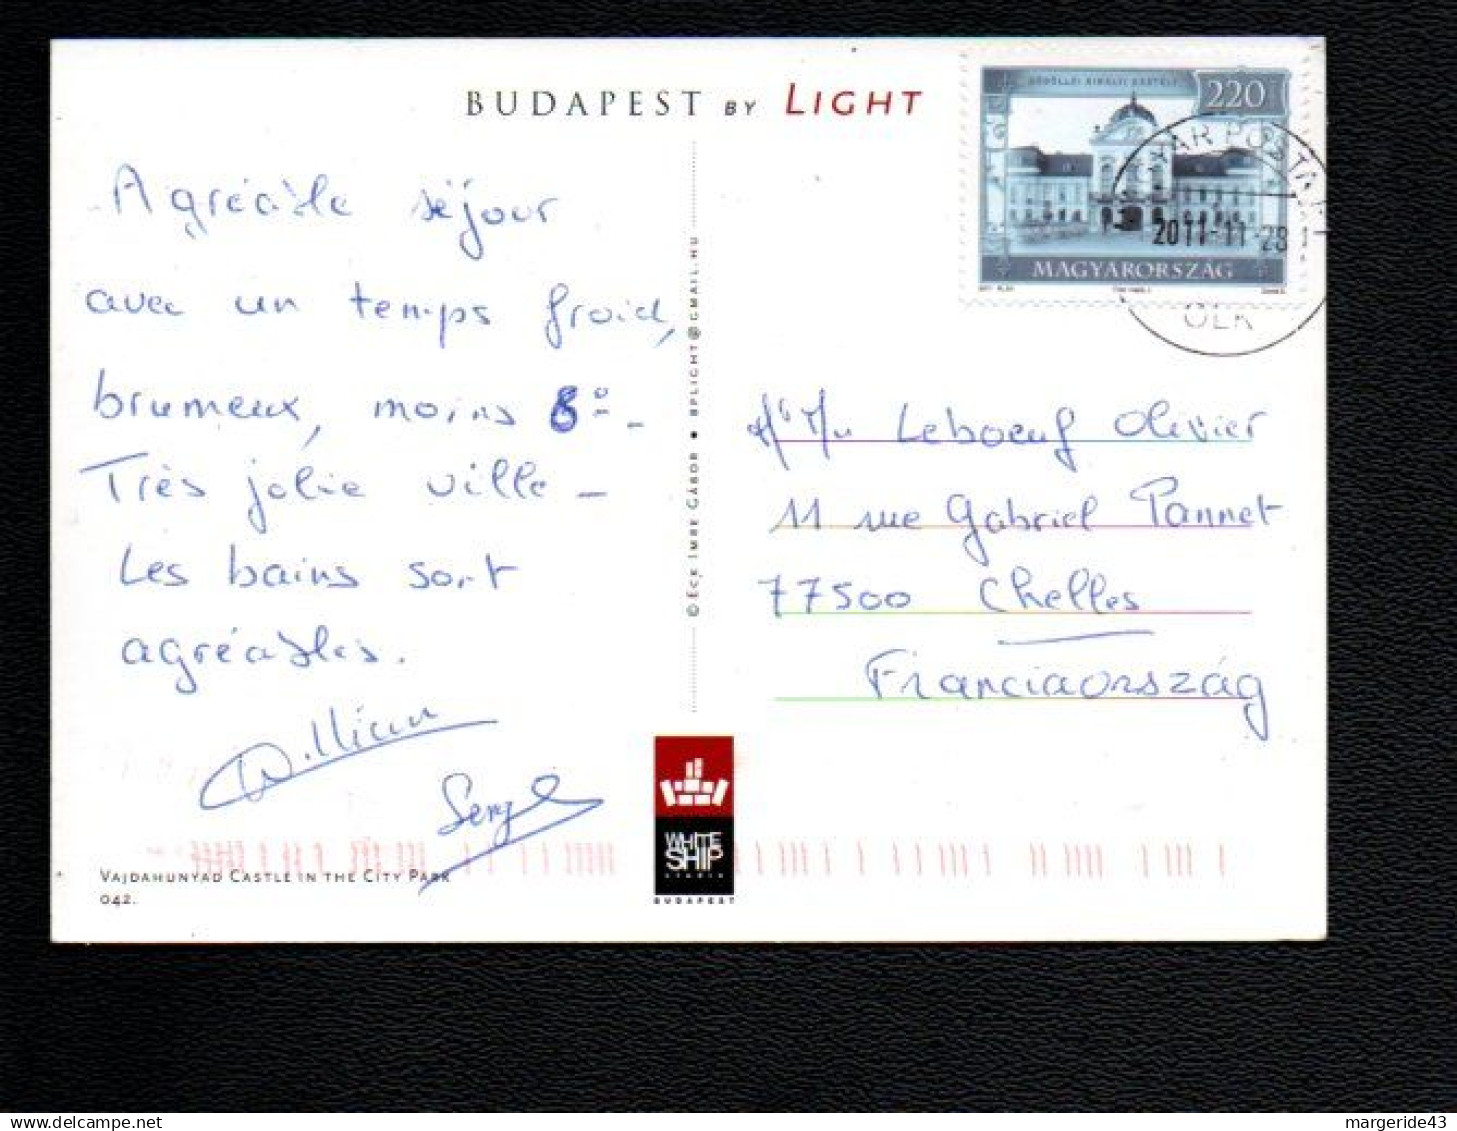 BUDAPEST BY LIGHT
GÖDÖLLŐI KIRÁLYI KASTÉLY
220
MAGYARORSZÁG
MAGYAR POSTA
2011-11-28
OLK
Agréable séjour
avec un temps froid,
brumeux, moins 6° -
Très jolie ville -
Les bains sont
agréables.
William
Serge
© ECK IMRE GÁBOR • BPLIGHT@GMAIL.HU
Leboeuf Olivier
11 rue Gabriel Pannet
77500 Chelles
Franciaország
WHITE
SHIP
STUDIO
BUDAPEST
VAJDAHUNYAD CASTLE IN THE CITY PARK
042.
margeride43